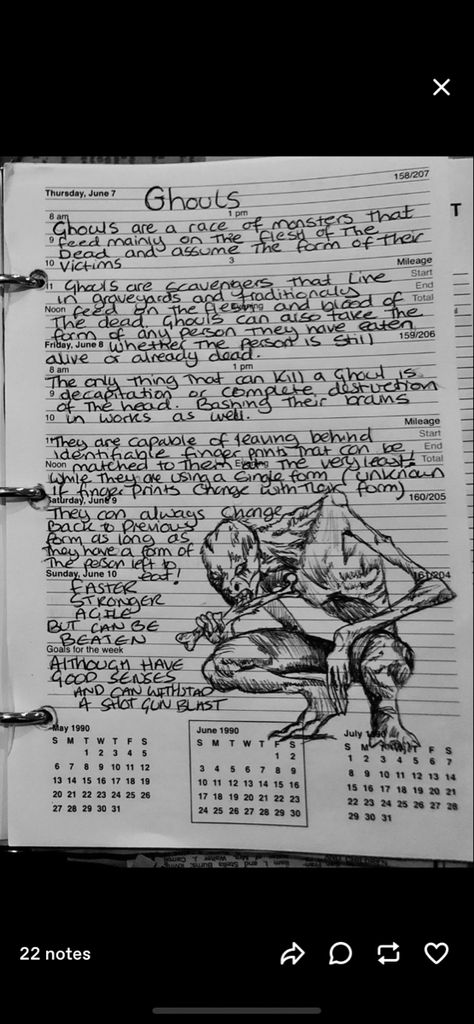 158/207
Thursday, June 7
Ghouls
8 am
1 pm
Ghouls are a race of monsters that
9 feed mainly on the flesh of the
Dead and assume the form of their
10 victims
3
Mileage
Start
11 Ghouls are scavengers that live
End
in graveyards and traditionally
Noon feed on the flesh and blood of
Total
The dead Ghouls can also take the
form of any person they have eaten
159/206
Friday, June 8 whether the person is still
alive or already dead.
8 am
1 pm
The only thing that can kill a Ghoul is
9 decapitation or complete destruction
of the head. Bashing their brains
10 in works as well.
Mileage
11 They are capable of leaving behind
Start
identifiable finger prints that can be
End
Noon matched to them at the very least!
Total
while they are using a single form (unknown
if finger prints change with their form)
Saturday, June 9
160/205
They can always change
Back to Previous
form as long as
they have a form of
The person left to
eat!
Sunday, June 10
161/204
FASTER
STRONGER
AGILE
BUT CAN BE
BEATEN
Goals for the week
ALTHOUGH HAVE
GOOD SENSES
AND CAN WITHSTAD
A SHOT GUN BLAST
May 1990
S M T W T F S
1 2 3 4 5
6 7 8 9 10 11 12
13 14 15 16 17 18 19
20 21 22 23 24 25 26
27 28 29 30 31
June 1990
S M T W T F S
1 2
3 4 5 6 7 8 9
10 11 12 13 14 15 16
17 18 19 20 21 22 23
24 25 26 27 28 29 30
July 1990
S M T F S
1 2 3 4 5 6 7
8 9 10 11 12 13 14
15 16 17 18 19 20 21
22 23 24 25 26 27 28
29 30 31
T
22 notes